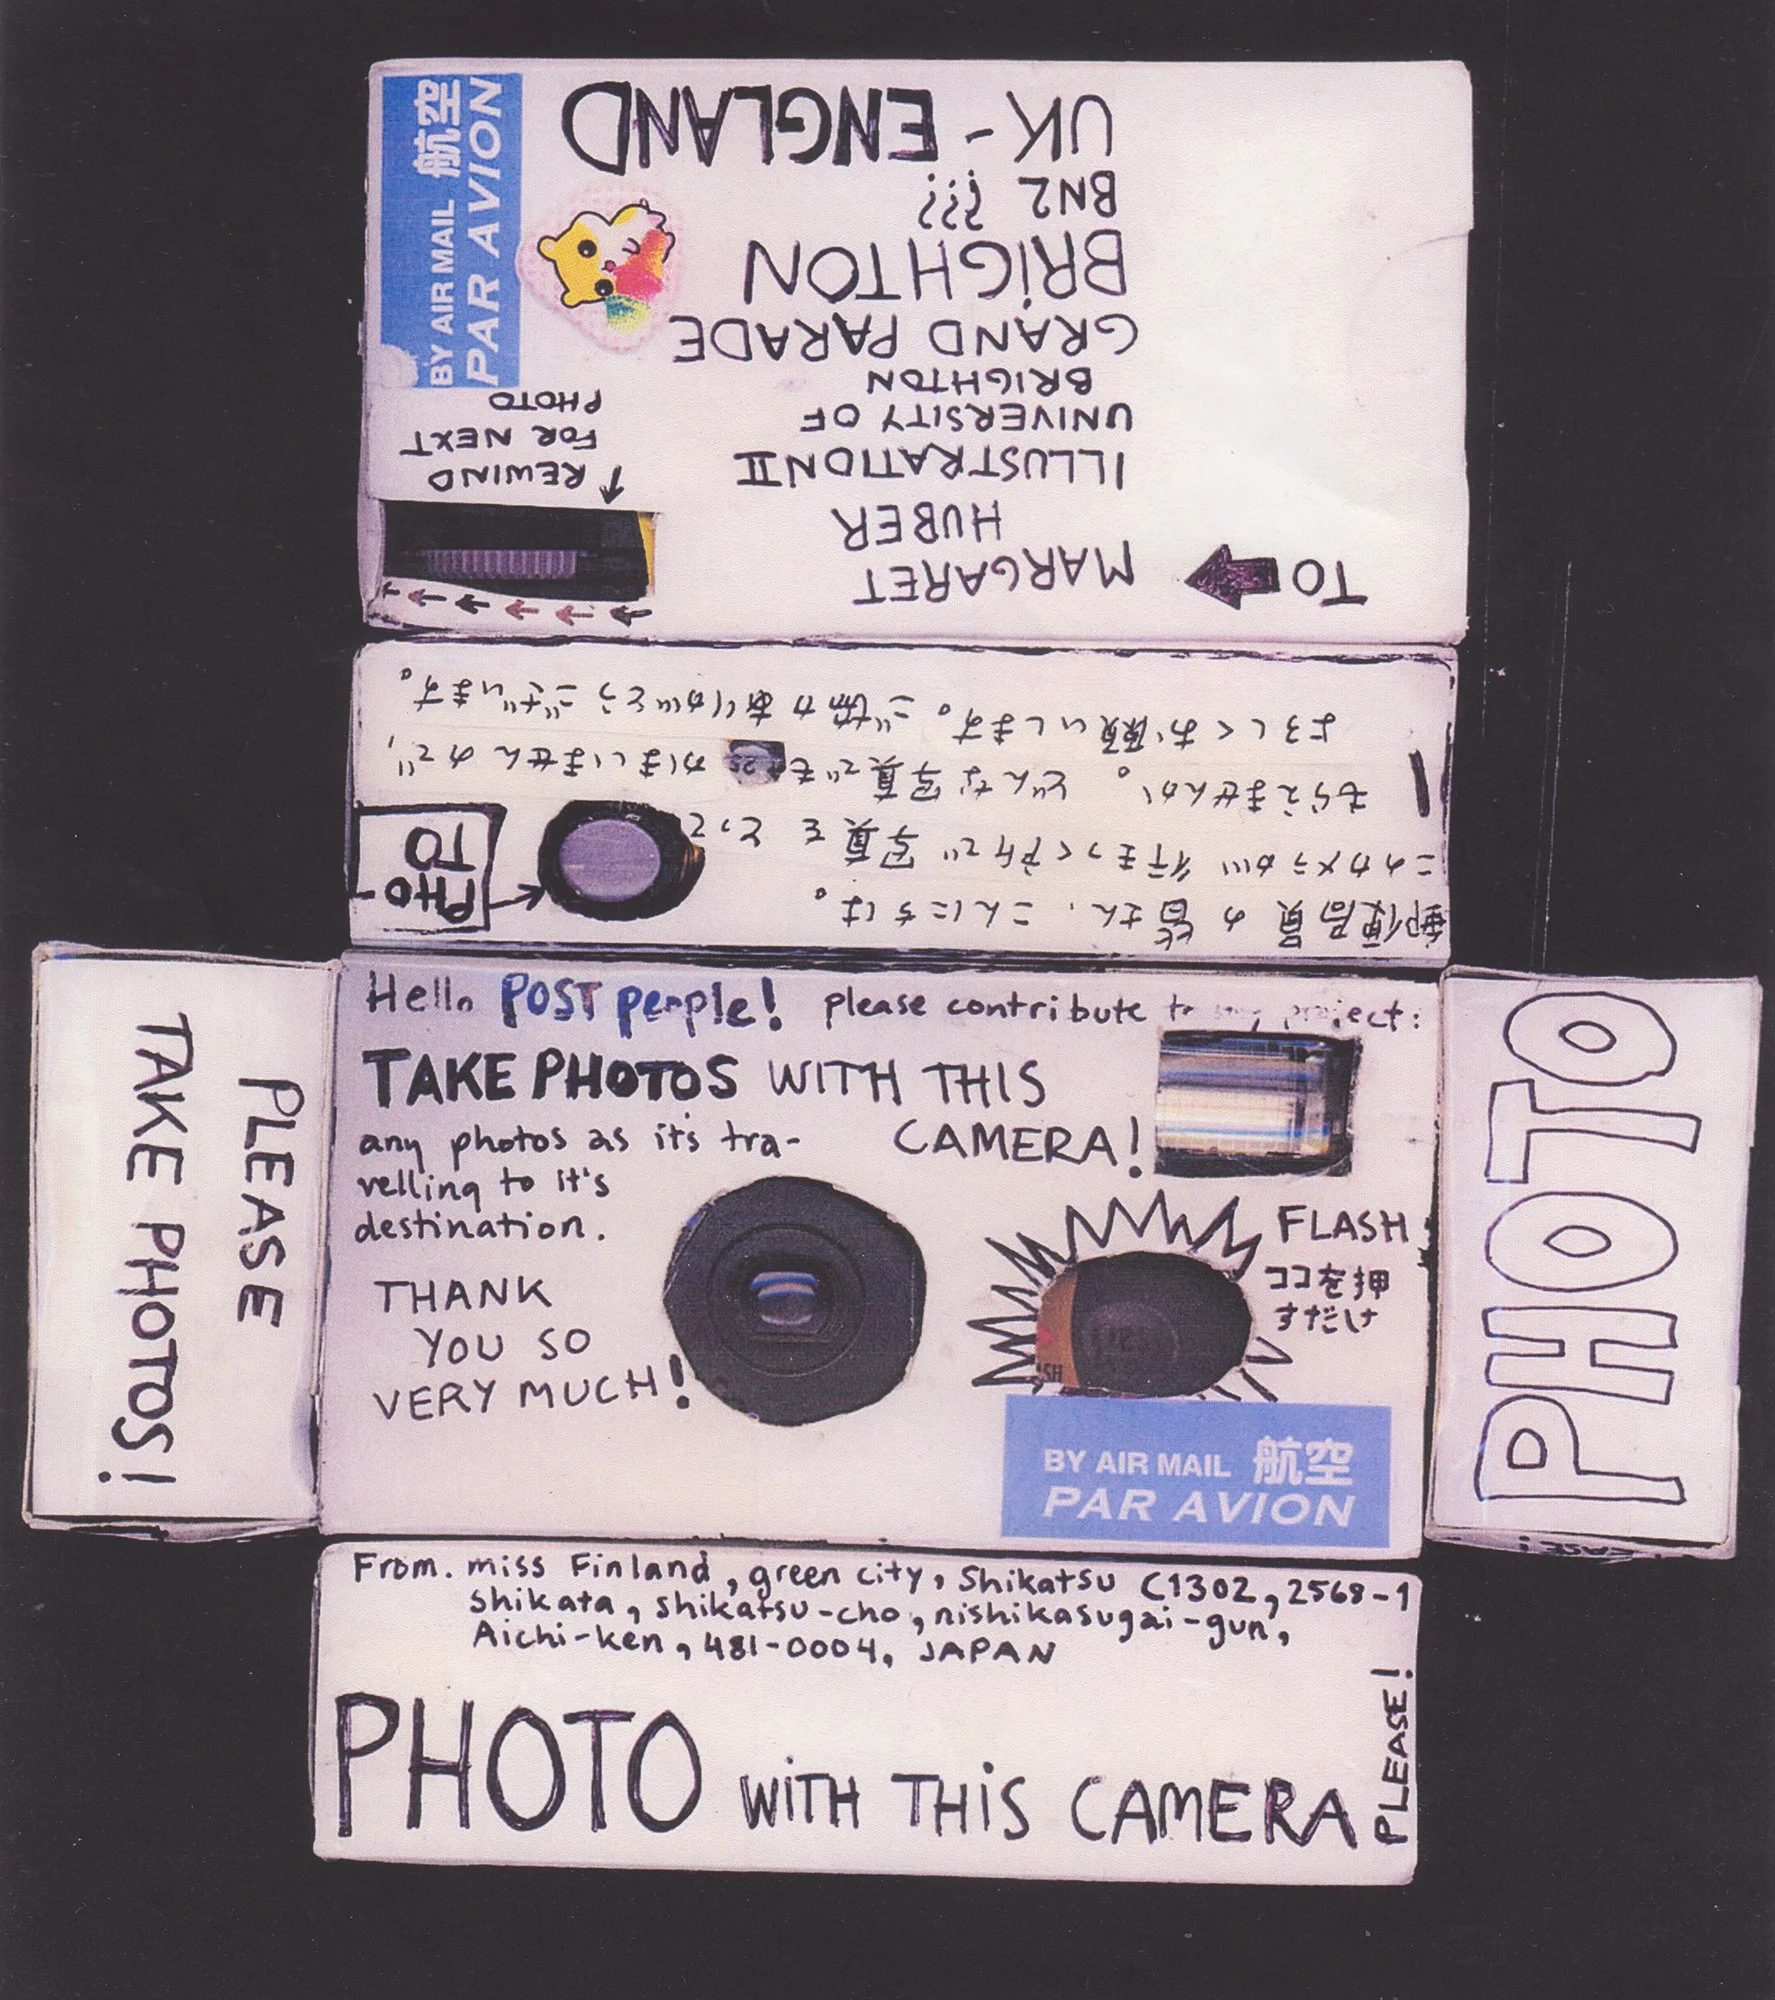 TO
MARGARET
HUBER
ILLUSTRATION II
UNIVERSITY OF
BRIGHTON
GRAND PARADE
BRIGHTON
BN2 ???
UK - ENGLAND
REWIND
FOR NEXT
PHOTO
BY AIR MAIL 航空
PAR AVION
郵便局員の皆さん、こんにちは。
このカメラが行きつく所で写真をとって
もらえませんか。どんな写真でもかまいませんので、
よろしくお願いします。ご協力ありがとうございます。
PHO-
TO
25
PLEASE
TAKE PHOTOS!
Hello POST people! please contribute to my project:
TAKE PHOTOS WITH THIS
CAMERA!
any photos as its tra-
velling to it's
destination.
THANK
YOU SO
VERY MUCH!
FLASH
ココを押
すだけ
BY AIR MAIL 航空
PAR AVION
PHOTO
From. miss Finland, green city, Shikatsu C1302, 2568-1
Shikata, shikatsu-cho, nishikasugai-gun,
Aichi-ken, 481-0004, JAPAN
PHOTO WiTH THiS CAMERA
PLEASE!